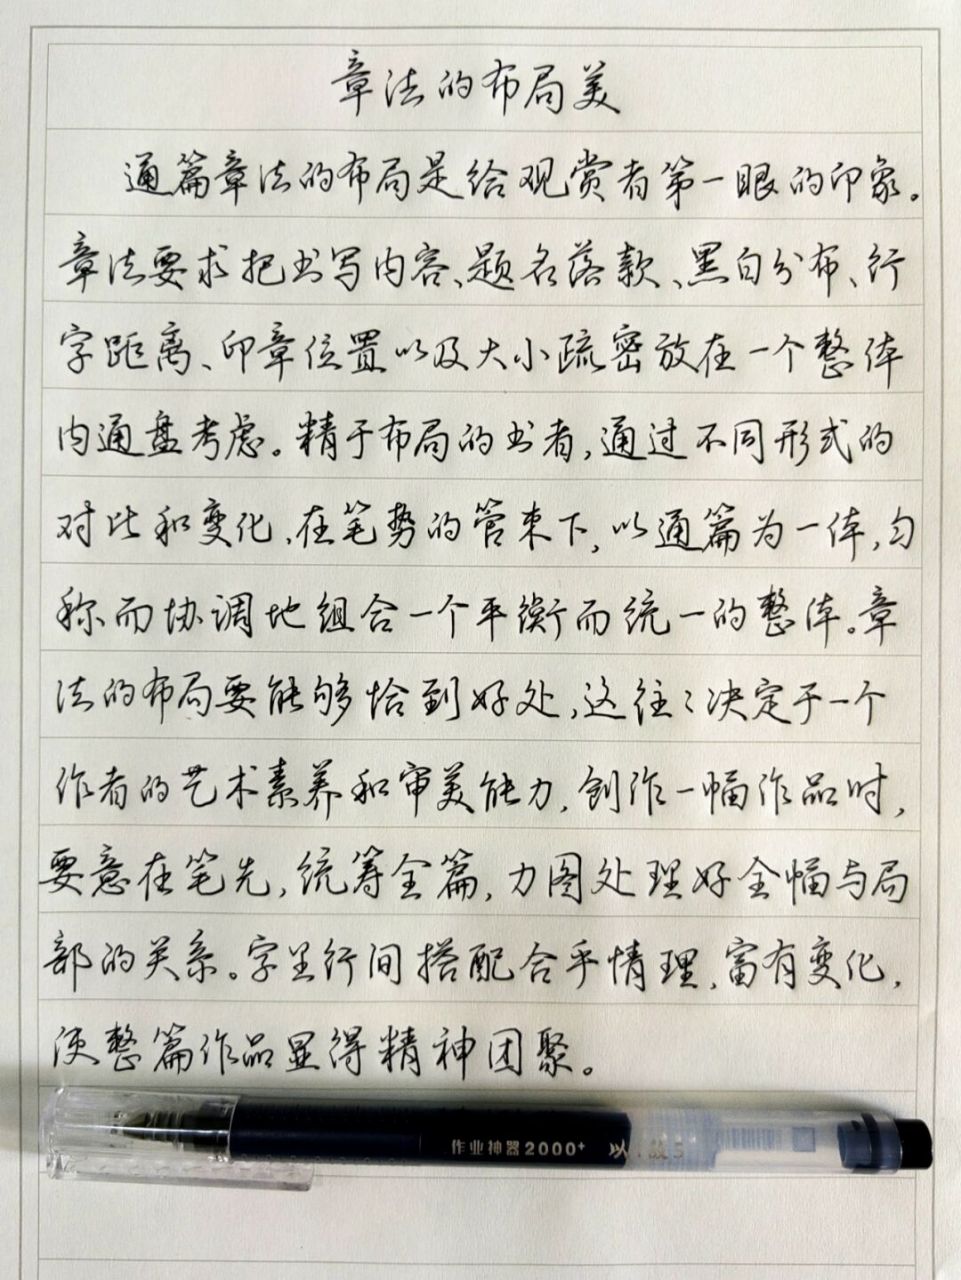 章法的布局美
通篇章法的布局是给观赏者第一眼的印象。
章法要求把书写内容、题名落款、黑白分布、行
字距离、印章位置以及大小疏密放在一个整体
内通盘考虑。精于布局的书者,通过不同形式的
对比和变化,在笔势的管束下,以通篇为一体,匀
称而协调地组合一个平衡而统一的整体。章
法的布局要能够恰到好处,这往々决定于一个
作者的艺术素养和审美能力,创作一幅作品时,
要意在笔先,统筹全篇,力图处理好全幅与局
部的关系。字里行间搭配合乎情理,富有变化,
使整篇作品显得精神团聚。
作业神器2000+